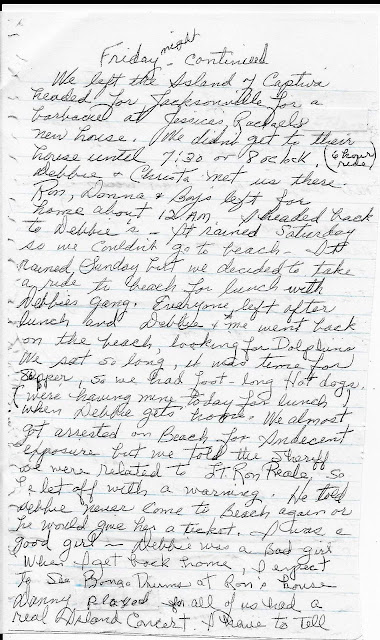 Friday night - continued
We left the Island of Captiva
headed for Jacksonville for a
barbacue at Jessicas, Rachaels
new house. We didn't get to their
house until 7:30 or 8 oclock. (6 hour ride)
Debbie & Christa met us there.
Ron, Donna & Boys left for
home about 12 AM. I headed back
to Debbie's - It rained Saturday
so we couldn't go to beach - It
rained Sunday but we decided to take
a ride to beach for lunch with
Debbies gang. Everyone left after
lunch and Debbie & me went back
on the beach, looking for Dolphins
We sat so long, it was time for
supper, so we had foot-long Hot dogs.
were having mine today for lunch
when Debbie gets home. We almost
got arrested on Beach for Indecent
exposure but we told the Sheriff
we were related to Lt. Ron Reale, so
he let off with a warning. He told
Debbie never come to beach again or
he would give her a ticket. I was a
good girl - Debbie was a Bad girl
When I get back home, I expect
to see Bongo Drums at Ron's house
Danny played for all of us had a
real Island Concert. I have to tell